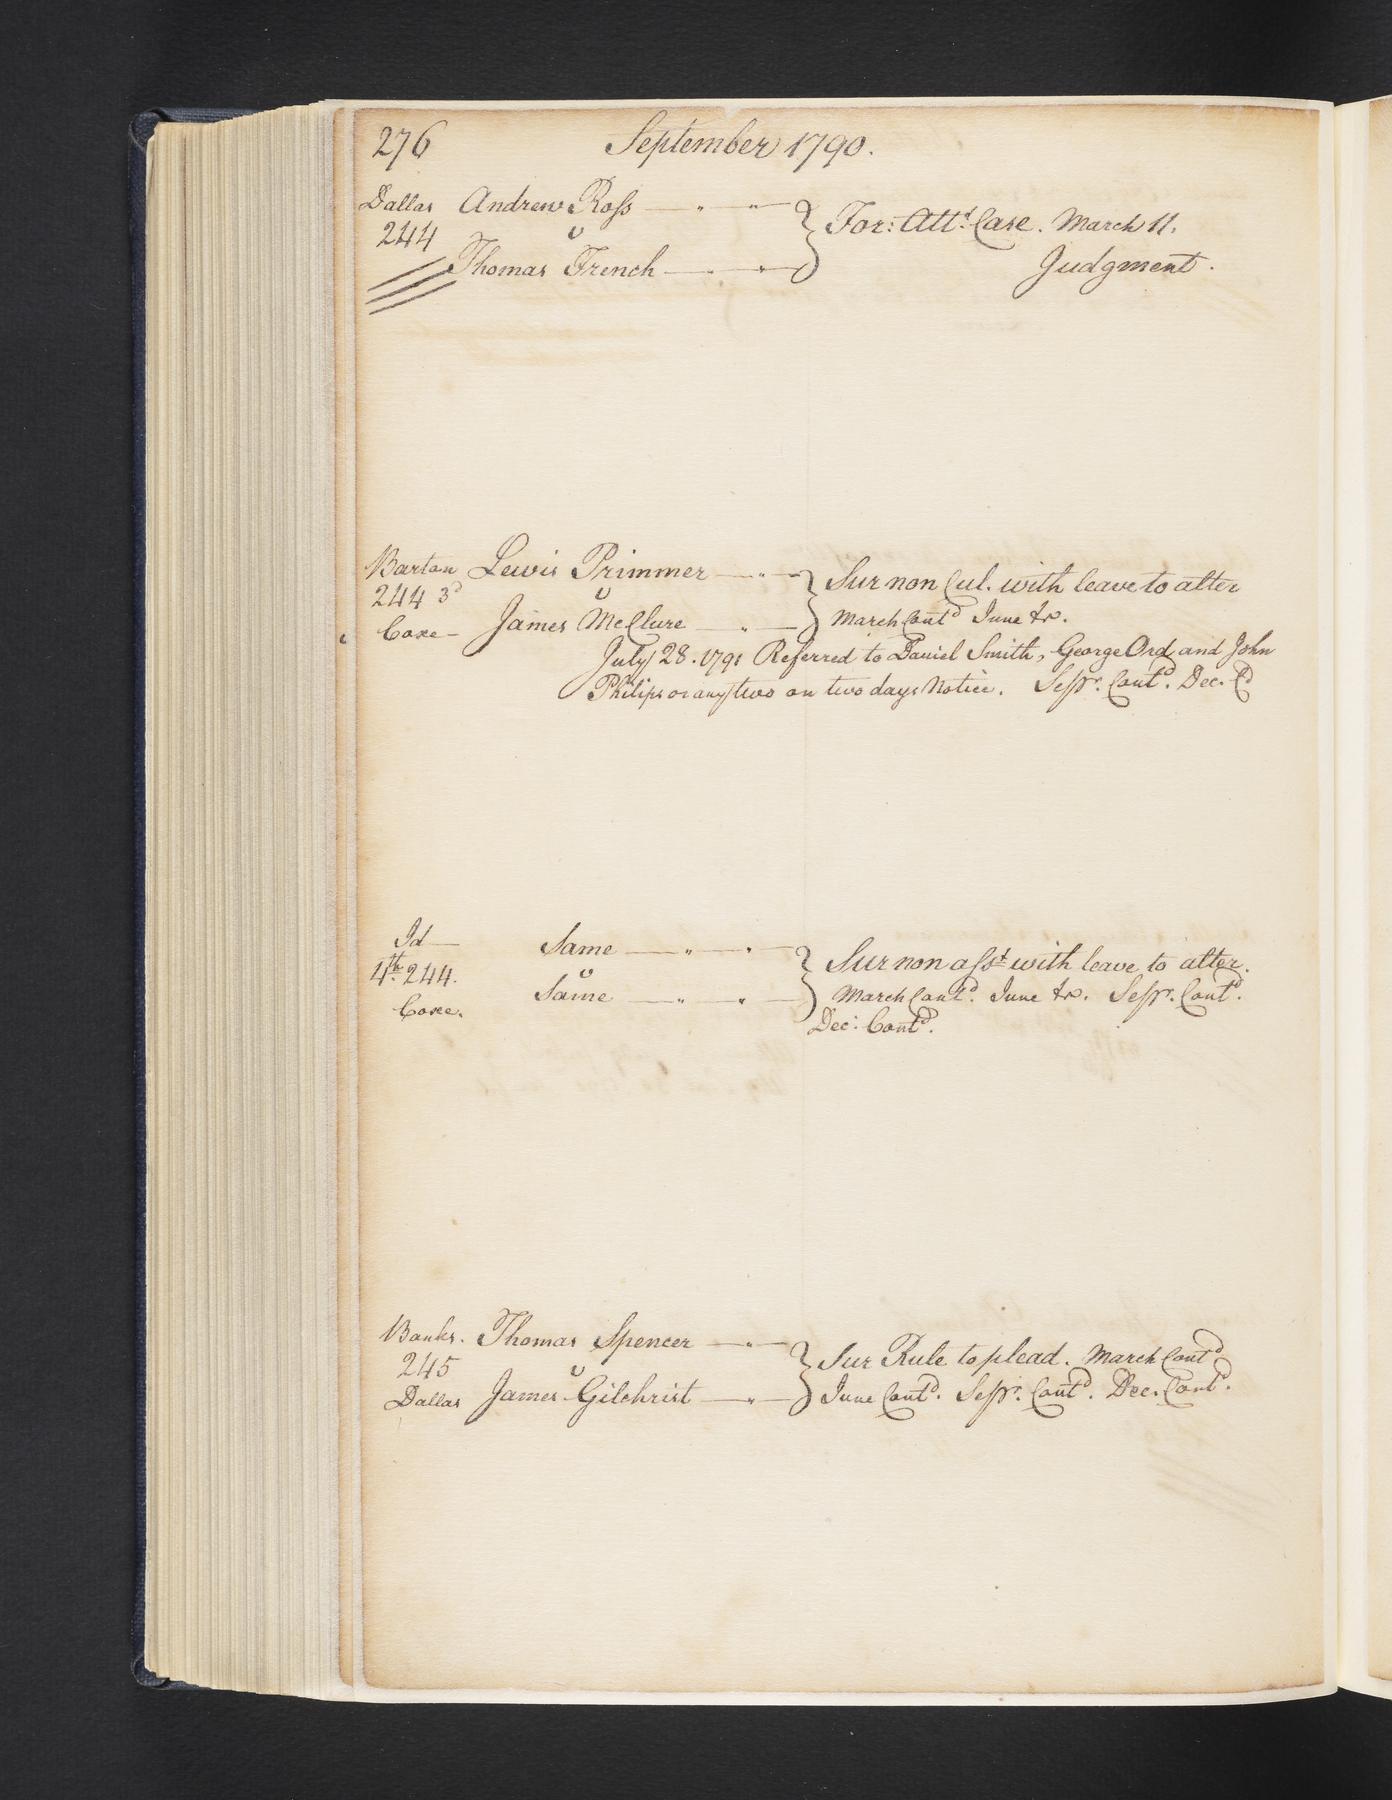 276 September 1790.
Dallas Andrew Ross
244 v For: Att.t Case. March 11.
Thomas French Judgment.
Barton Lewis Primmer Sur non Cul. with leave to alter
244 3d v
Coxe James McClure March Cont.d June &c.
July 28. 1791 Referred to Daniel Smith, George Ord and John
Philips or any two on two days Notice. Sepr. Cont.d Dec. C.d
Id Same
4th. 244. v Sur non asst with leave to alter.
Coxe. Same March Cont.d June &c. Sepr. Cont.d
Dec: Cont.d
Banks. Thomas Spencer Sur Rule to plead. March Cont.d
245 v
Dallas James Gilchrist June Cont.d Sepr. Cont.d Dec. Cont.d